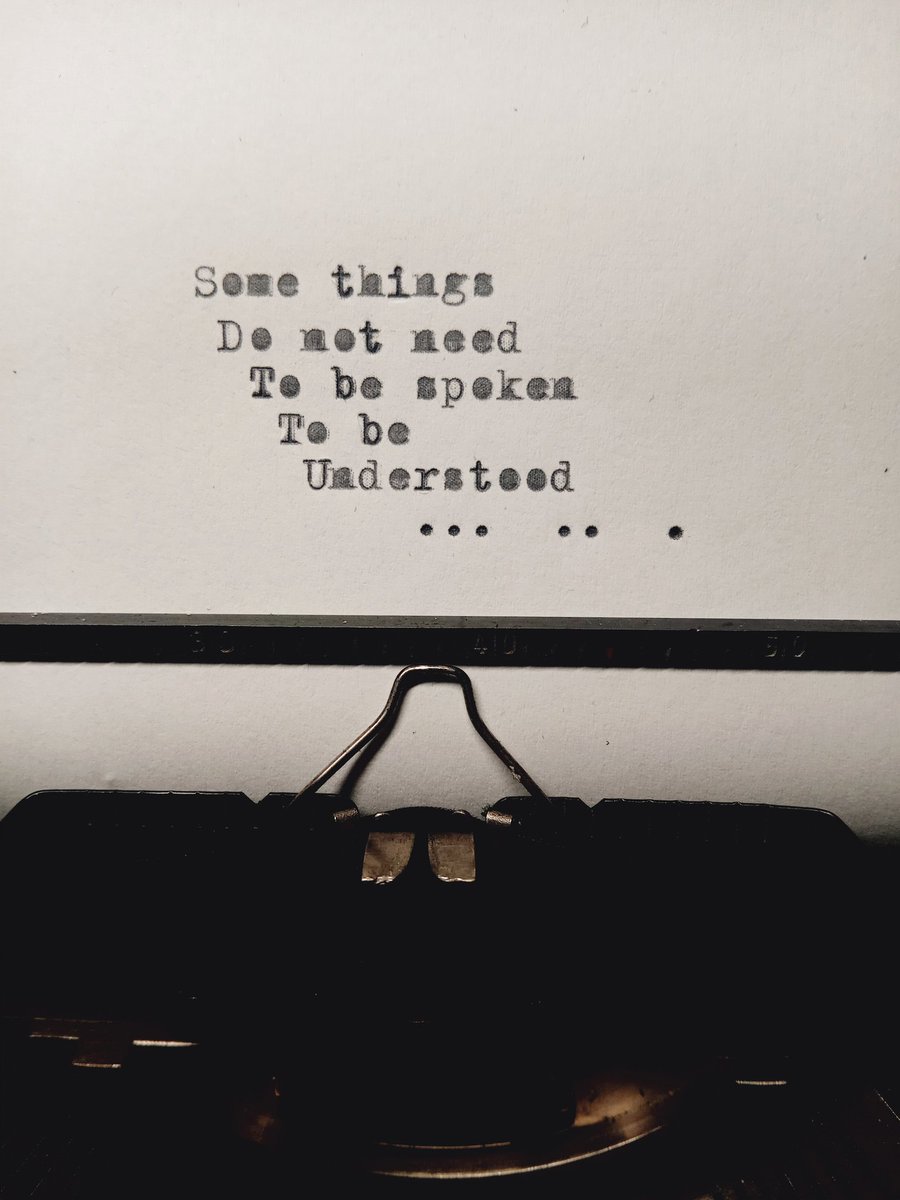 Some things
Do not need
To be spoken
To be
Understood
... .. .
30 40 50